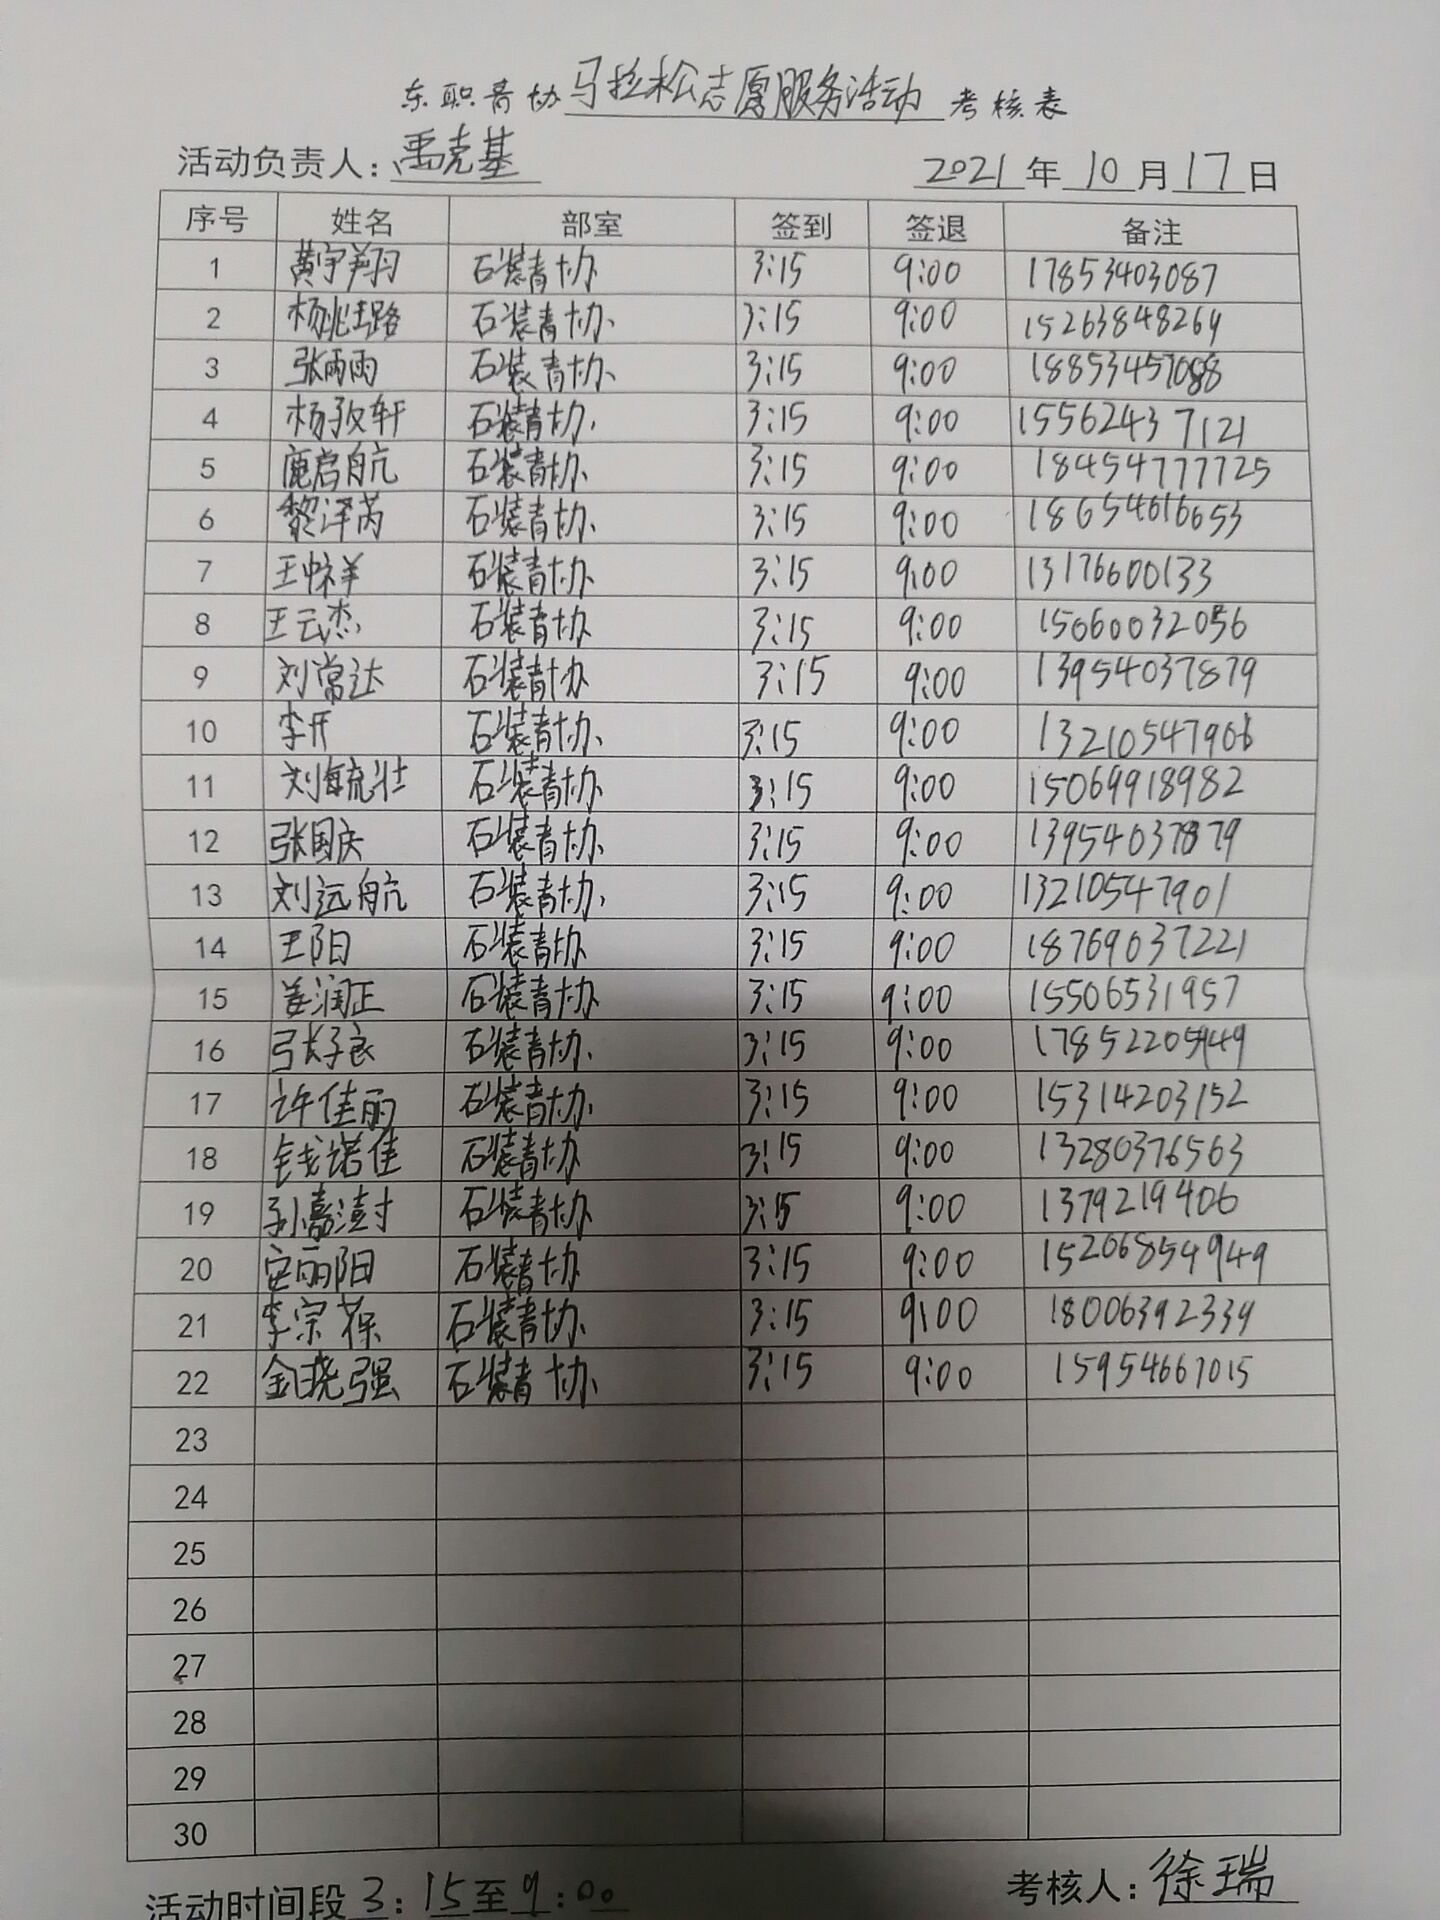 东职青协马拉松志愿服务活动考核表
活动负责人:禹克基 2021年10月17日
序号 姓名 部室 签到 签退 备注
1 黄宇翔 石装青协 3:15 9:00 17853403087
2 杨 路 石装青协 3:15 9:00 15263848269
3 张雨雨 石装青协 3:15 9:00 18853457088
4 杨孜轩 石装青协 3:15 9:00 15562437121
5 鹿启航 石装青协 3:15 9:00 18454777725
6 黎泽芮 石装青协 3:15 9:00 18654616653
7 王 祥 石装青协 3:15 9:00 13176600133
8 王云杰 石装青协 3:15 9:00 15060032056
9 刘常达 石装青协 3:15 9:00 13954037879
10 李开 石装青协 3:15 9:00 13210547906
11 刘毓壮 石装青协 3:15 9:00 15069918982
12 张国庆 石装青协 3:15 9:00 13954037879
13 刘远航 石装青协 3:15 9:00 13210547901
14 王阳 石装青协 3:15 9:00 18769037221
15 姜润正 石装青协 3:15 9:00 15506531957
16 张子良 石装青协 3:15 9:00 17852205949
17 许佳丽 石装青协 3:15 9:00 15314203152
18 钱诺佳 石装青协 3:15 9:00 13280376563
19 孙嘉澍 石装青协 3:15 9:00 1379219406
20 安丽阳 石装青协 3:15 9:00 15206854949
21 李宗葆 石装青协 3:15 9:00 18006392339
22 金晓强 石装青协 3:15 9:00 15954667015
23
24
25
26
27
28
29
30
活动时间段3:15至9:00 考核人:徐瑞